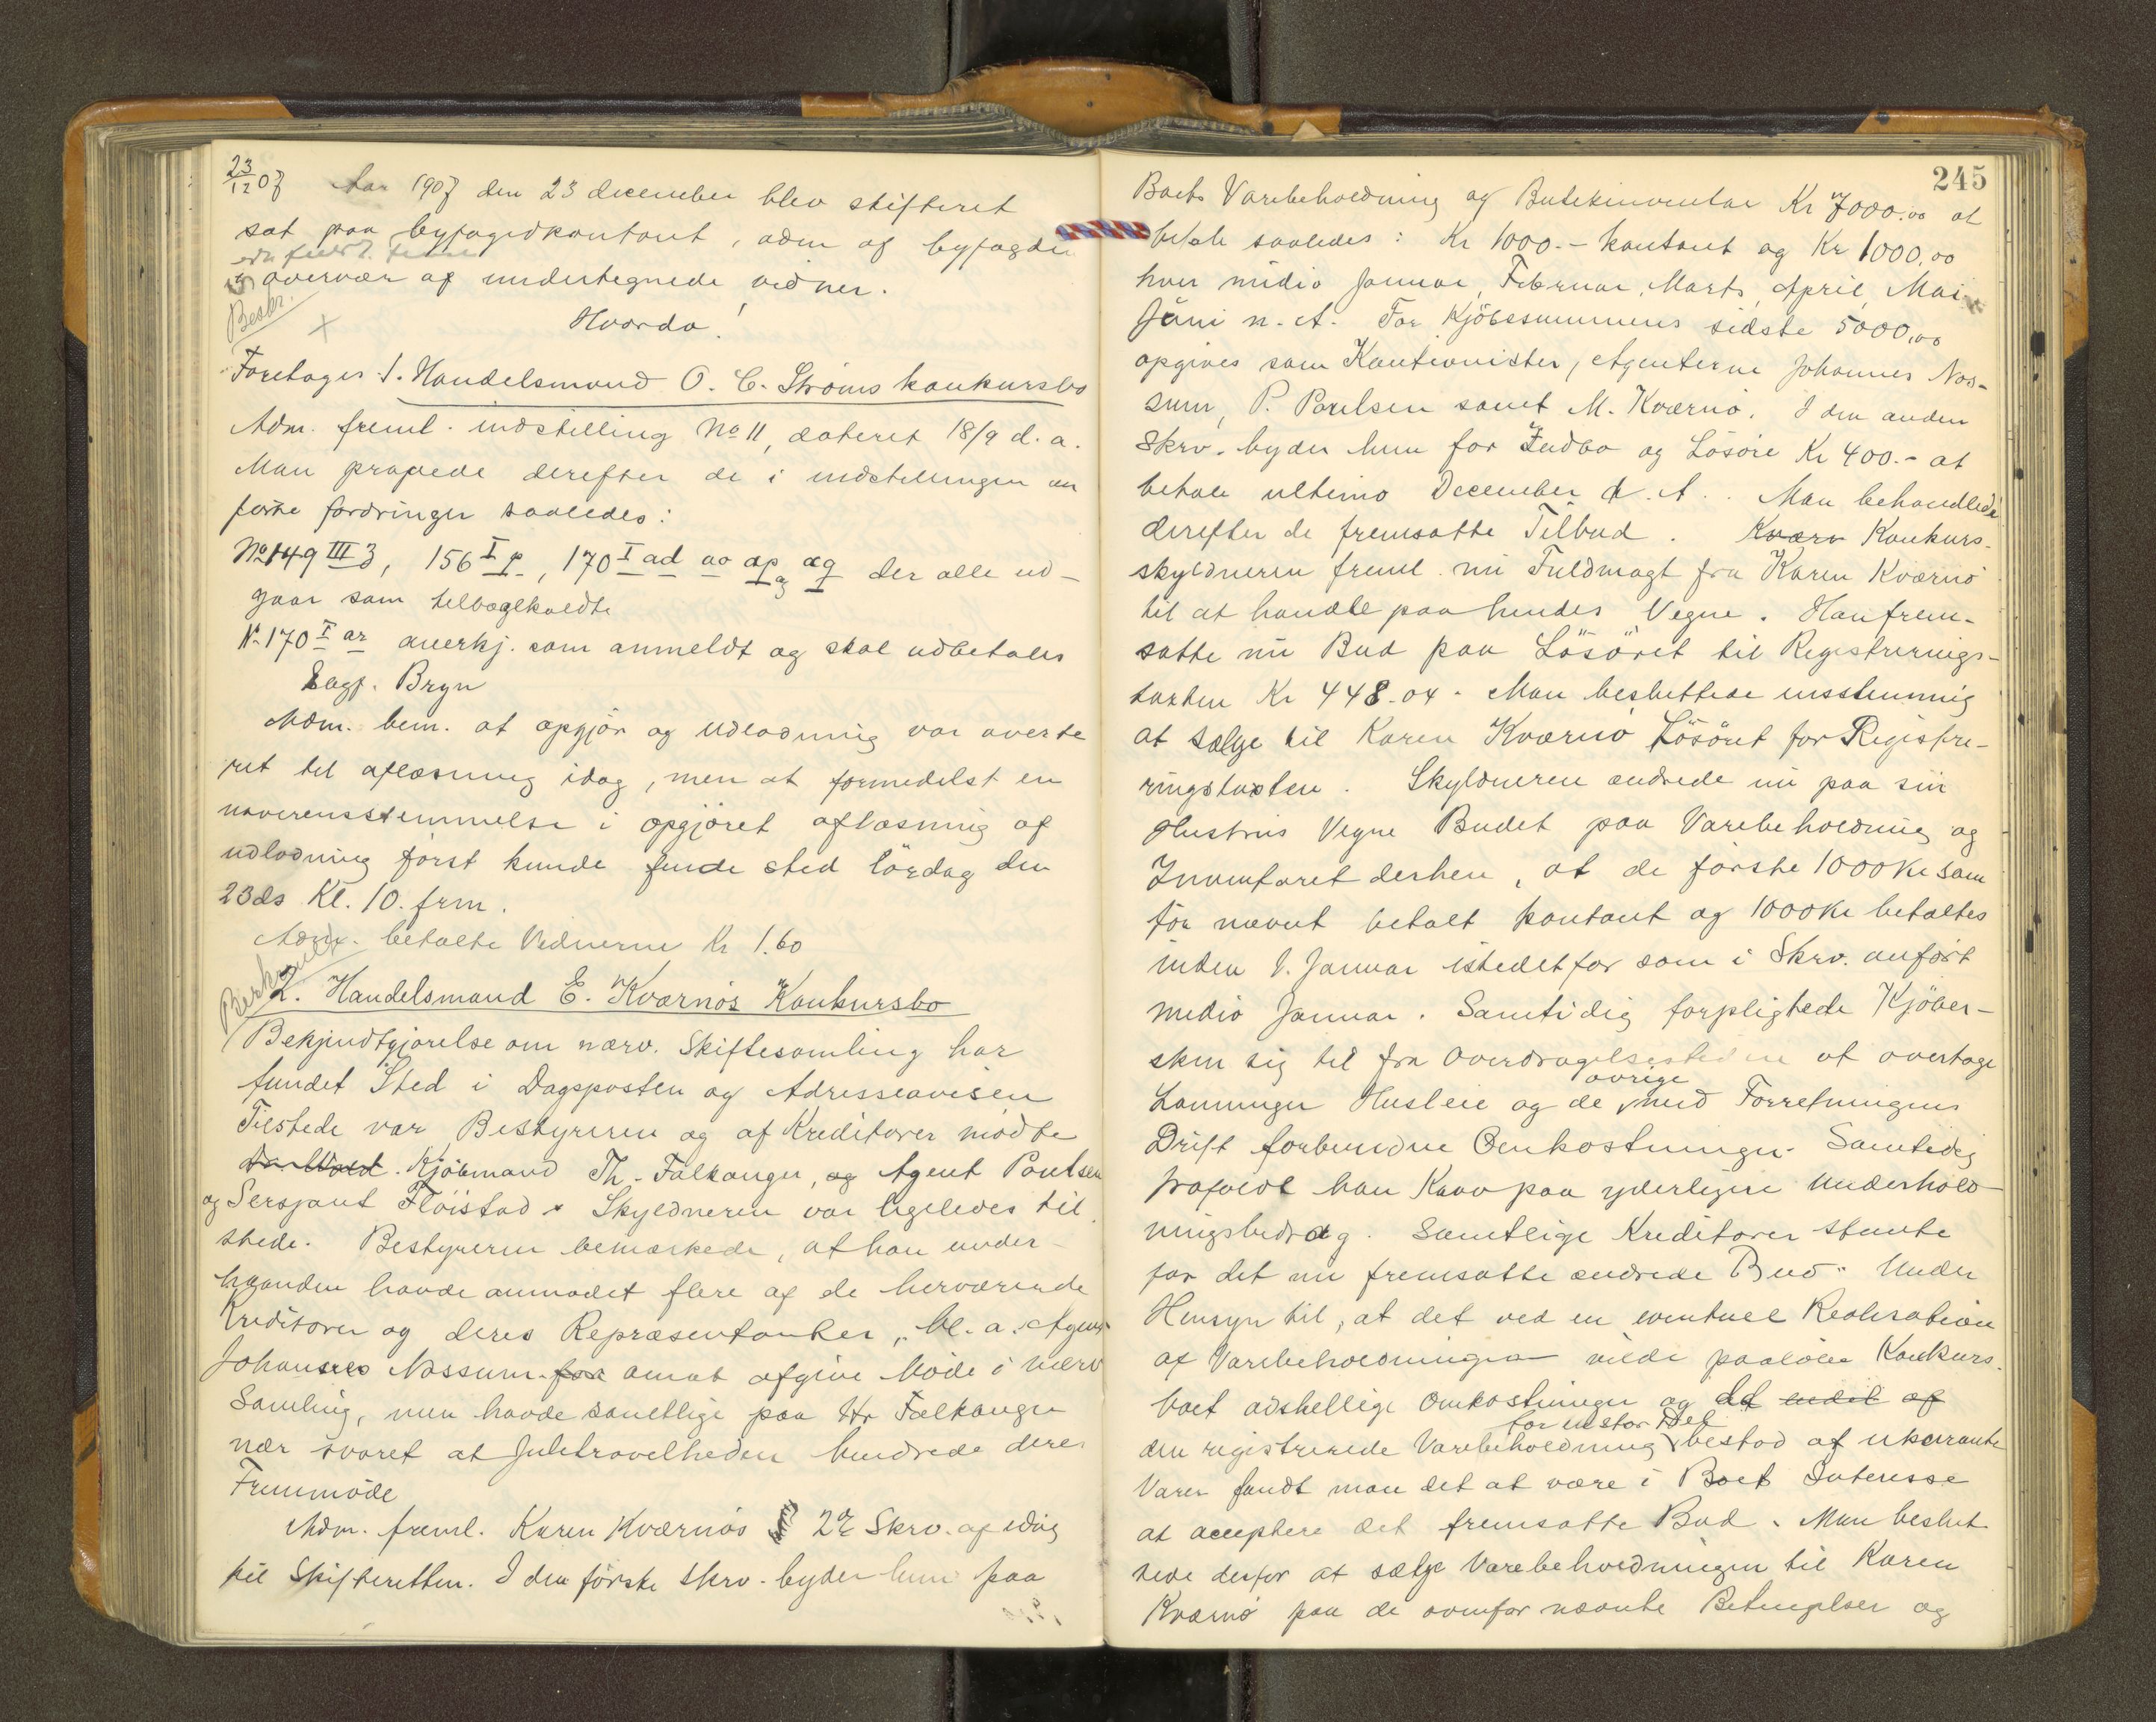 23/12 07 Aar 1907 den 23 december blev skifteret
sat paa byfogedkontoret, adm af byfogden
i overvær af undertegnede vidner.
Beskr.
Hvorda!
Foretoges 1. Handelsmand O. C. Strøms konkursbo
Adm. freml. indstilling No 11, dateret 18/9 d. a.
Man prøvede derefter de i indstillingen an
førte fordringer saaledes:
No 149 III 3, 156 I p, 170 I ad ao ap og aq der alle ud-
gaar som tilbagekaldte
No 170 I ar anerkj. som anmeldt og skal udbetales
Sagf. Bryn
Adm. bem. at opgjør og udlodning var averte
ret til aflæsning idag, men at formedelst en
uoverensstemmelse i opgjøret aflæsning af
udlodning først kunde finde sted lördag den
23 ds Kl. 10. frm.
Adm. betalte Vidnerne Kr 1.60
2. Handelsmand E. Kværnøs Konkursbo
Bekjendtgjørelse om nærv. Skiftesamling har
fundet Sted i Dagsposten og Adresseavisen
Tilstede var Bestyreren og af Kreditorer mødte
Kjöbmand Th. Falkanger, og Agent Poulsen
og Sersjant Flöistad. Skyldneren var ligeledes til
stede. Bestyreren bemærkede, at han under-
haanden havde anmodet flere af de herværende
Kreditorer og deres Repræsentanter, bl. a. Agent
Johannes Nossum for om at afgive Møde i nærv
Samling, men havde samtlige paa Hr Falkanger
nær svaret at Juletravelheden hindrede deres
Fremmöde
Adm. freml. Karen Kværnøs 2de Skrv. af idag
til Skifteretten. I den förste skrv. byder hun paa
245
Boets Varebeholdning og Butikinventar Kr 7000.00 at
betale saaledes: Kr 1000.- kontant og Kr 1000,00
hver midio Januar, Februar, Marts, April, Mai
Juni n. A. For Kjöbesummens sidste 5000,00
opgives som Kautionister, Agenterne Johannes Nos-
sum, P. Poulsen samt M. Kværnø. I den anden
Skrv. byder hun for Indbo og Lösöre Kr 400.- at
betale ultimo December d. A. Man behandlede
derefter de fremsatte Tilbud. Kværn Konkurs-
skyldneren freml. nu Fuldmagt fra Karen Kværnø
til at handle paa hendes Vegne. Han frem-
satte nu Bud paa Lösöret til Registrerings-
taxten Kr 448.04. Man besluttede ensstemmig
at sælge til Karen Kværnø Lösöret for Registre-
ringstaxten. Skyldneren ændrede nu paa sin
Hustrus Vegne Budet paa Varebeholdning og
Inventaret derhen, at de første 1000 Kr som
før nævnt betalt kontant og 1000 Kr betaltes
inden 1. Januar istedetfor som i Skrv. anført
medio Januar. Samtidig forpligtede Kjöber-
sken sig til fra Overdragelsestiden at overtage
Lønninger Husleie og de øvrige med Forretningens
Drift forbundne Omkostninger. Samtidig
frafaldt han Krav paa yderligere Underhold-
ningsbidrag. Samtlige Kreditorer stemte
for det nu fremsatte ændrede Bud. Under
Hensyn til, at det ved en eventuel Realisation
af Varebeholdningen vilde paaløbe Konkurs-
boet adskellige Omkostninger og da endel af
den registrerede Varebeholdning for en stor Del bestod af ukurante
Varer fandt man det at være i Boets Interesse
at acceptere det fremsatte Bud. Man beslut
tede derfor at sælge Varebeholdningen til Karen
Kværnø paa de ovenfor nævnte Betingelser og